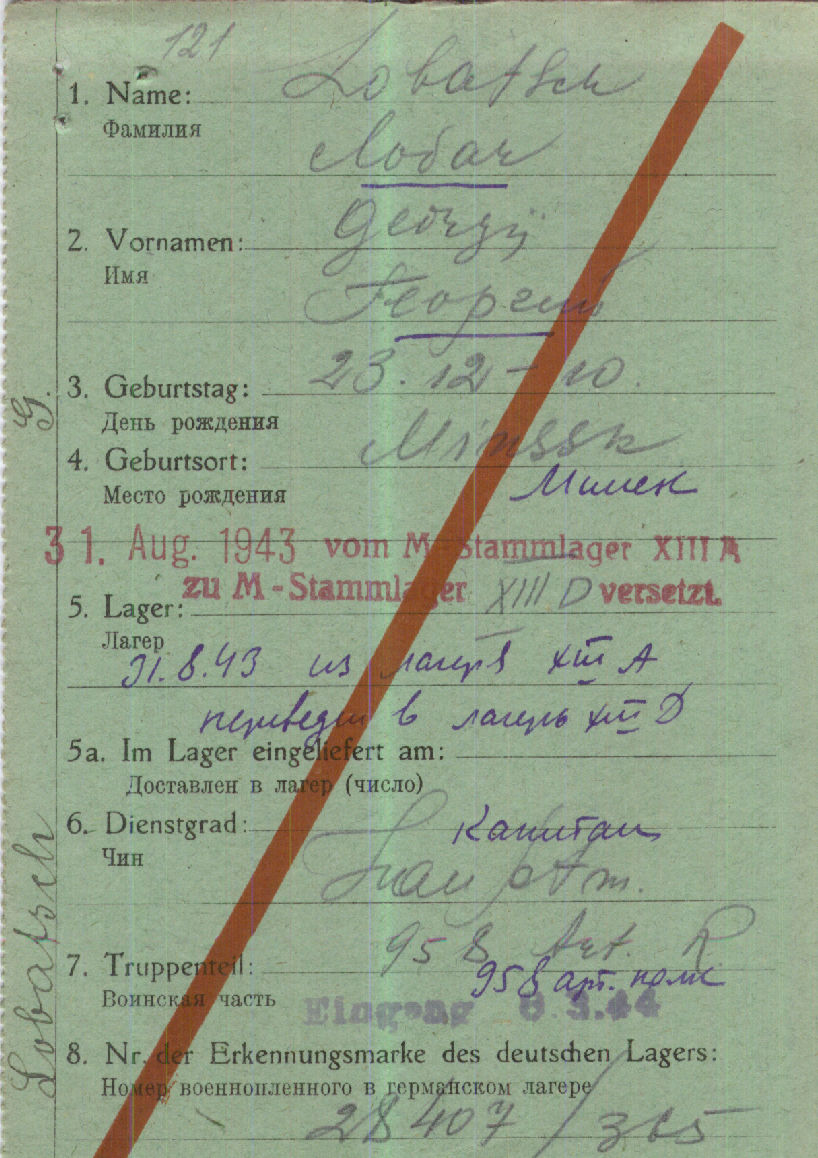 121
1. Name: Lobatsch
Фамилия
Лобач
2. Vornamen: Georgij
Имя
Георгий
3. Geburtstag: 23.12-10.
День рождения
4. Geburtsort: Minssk
Место рождения Минск
31. Aug. 1943 vom M-Stammlager XIII A
zu M-Stammlager XIII D versetzt.
5. Lager:
Лагер
31.8.43 из лагеря XIII A
переведен в лагерь XIII D
5a. Im Lager eingeliefert am:
Доставлен в лагер (число)
6. Dienstgrad: Капитан
Чин
Hauptm.
7. Truppenteil: 958 Art. R
Воинская часть 958 арт. полк
Eingang 3.44
8. Nr. der Erkennungsmarke des deutschen Lagers:
Номер военнопленного в германском лагере
28407 / 365
Lobatsch G.